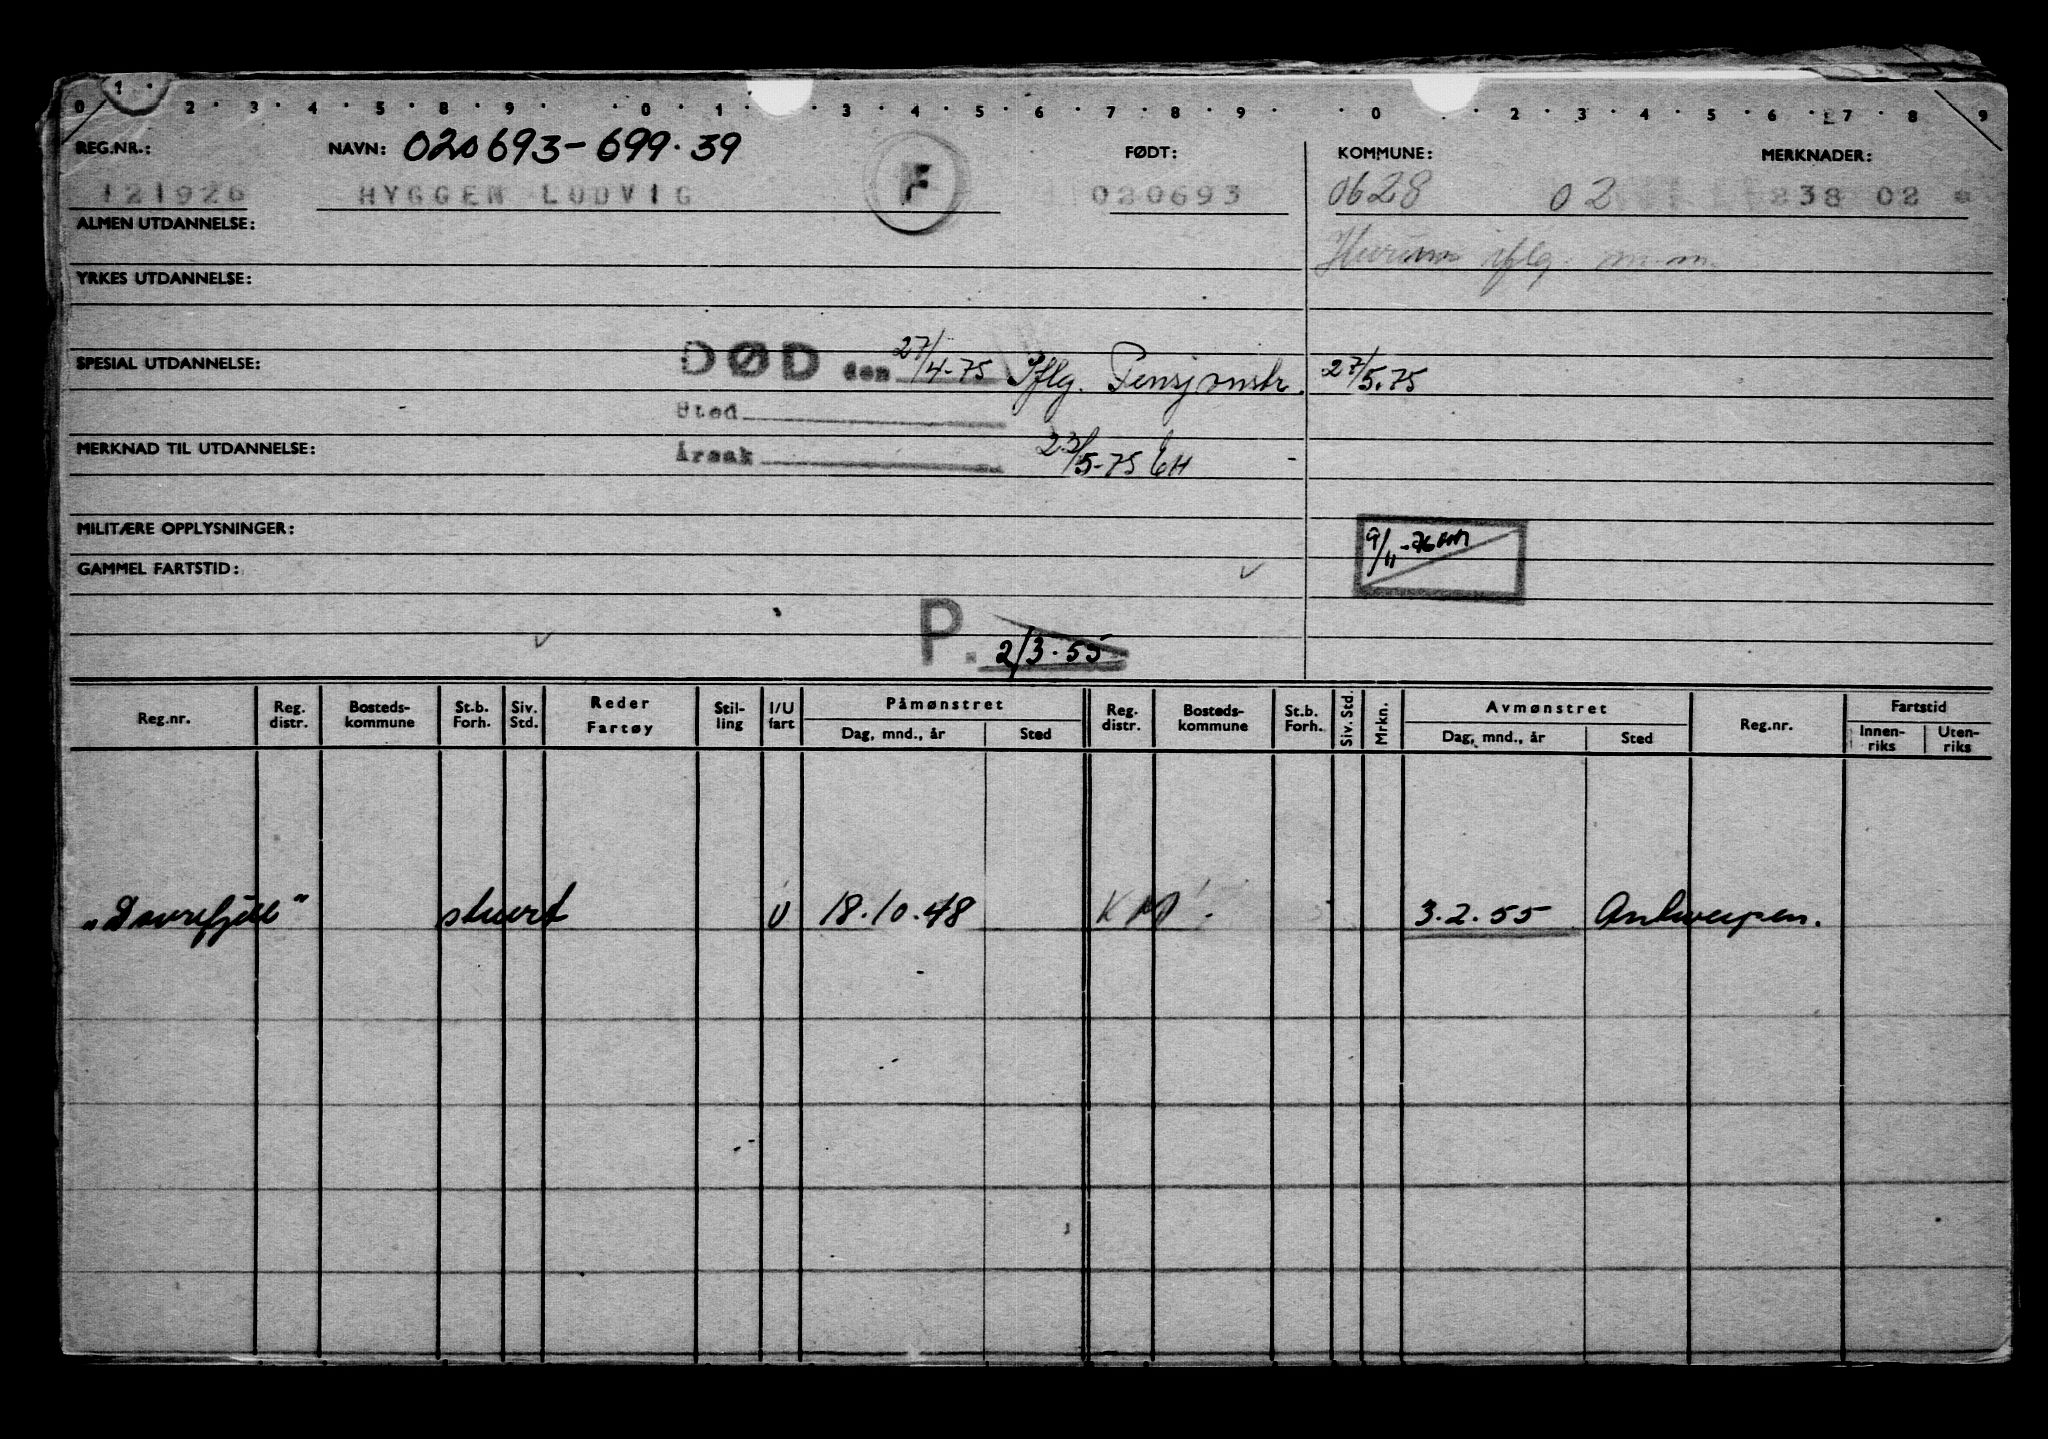 0 1 2 3 4 5 8 9 0 1 3 4 5 6 7 8 9 0 2 3 4 5 6 7 8 9
REG.NR.: NAVN: 020693-699.39 FØDT: KOMMUNE: MERKNADER:
121926 HYGGEN LUDVIG F 020693 0628 02 238 02
ALMEN UTDANNELSE:
Hurum iflg. m.m.
YRKES UTDANNELSE:
SPESIAL UTDANNELSE: DØD den 27/4-75 Iflg. Pensjonstr. 27/5.75
Sted
MERKNAD TIL UTDANNELSE: Årsak 23/5-75 EH
MILITÆRE OPPLYSNINGER: 9/11-76
GAMMEL FARTSTID:
P. 2/3.55
Reg.nr. Reg. distr. Bosteds-kommune St.b. Forh. Siv. Std. Reder Fartøy Stil-ling I/U fart Påmønstret Dag, mnd., år Sted Reg. distr. Bosteds-kommune St.b. Forh. Siv. Std. Mrkn. Avmønstret Dag, mnd., år Sted Reg.nr. Fartstid Innen-riks Uten-riks
"Dovrefjell" stuert U 18.10.48 3.2.55 Antwerpen.